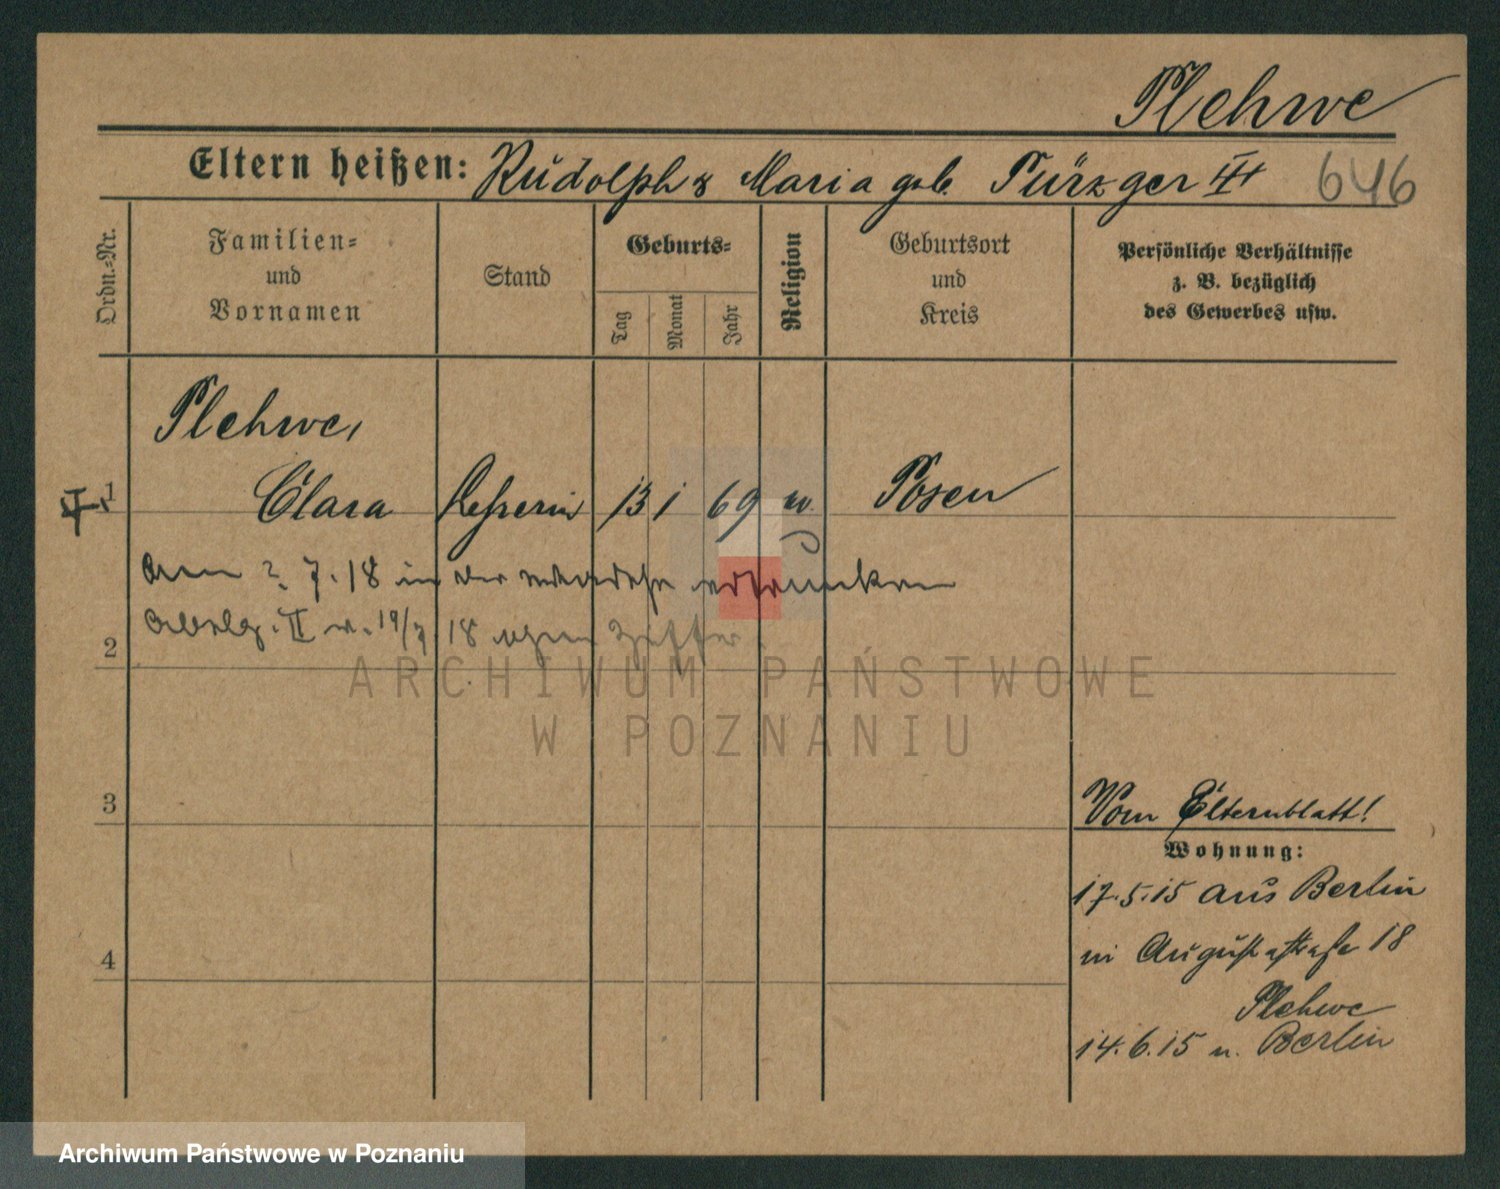 Plehwe
Eltern heißen: Rudolph & Maria geb. Türzger 646
Ordn.-Nr.
Familien-
und
Vornamen
Stand
Geburts-
Tag
Monat
Jahr
Religion
Geburtsort
und
Kreis
Persönliche Verhältnisse
z. B. bezüglich
des Gewerbes usw.
Plehwe,
1 Clara Lehrerin 13 1 69 Posen
am ? 7. 18 in der Warthe ertrunken
II 19/7 18
2
ARCHIWUM PAŃSTWOWE
W POZNANIU
3
Vom Elternblatt!
Wohnung:
17.5.15 aus Berlin
4
in Augustastraße 18
Plehwe
14.6.15 n. Berlin
Archiwum Państwowe w Poznaniu